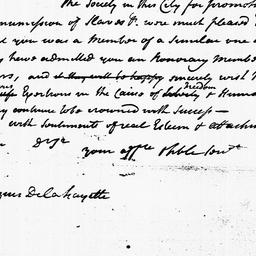 The Society in this City for promoti
numission of Slaves &c. were much pleased t
d you was a Member of a similar one i
y have admitted you an Honorary Membe
rs, and they will be happy sincerely wish t
Exertions in the Cause of Liberty freedom & Human
y continue to be crowned with Success —
with Sentiments of real Esteem & attachm
Dr Sir
your affte Hble Servt
quis De la Fayette